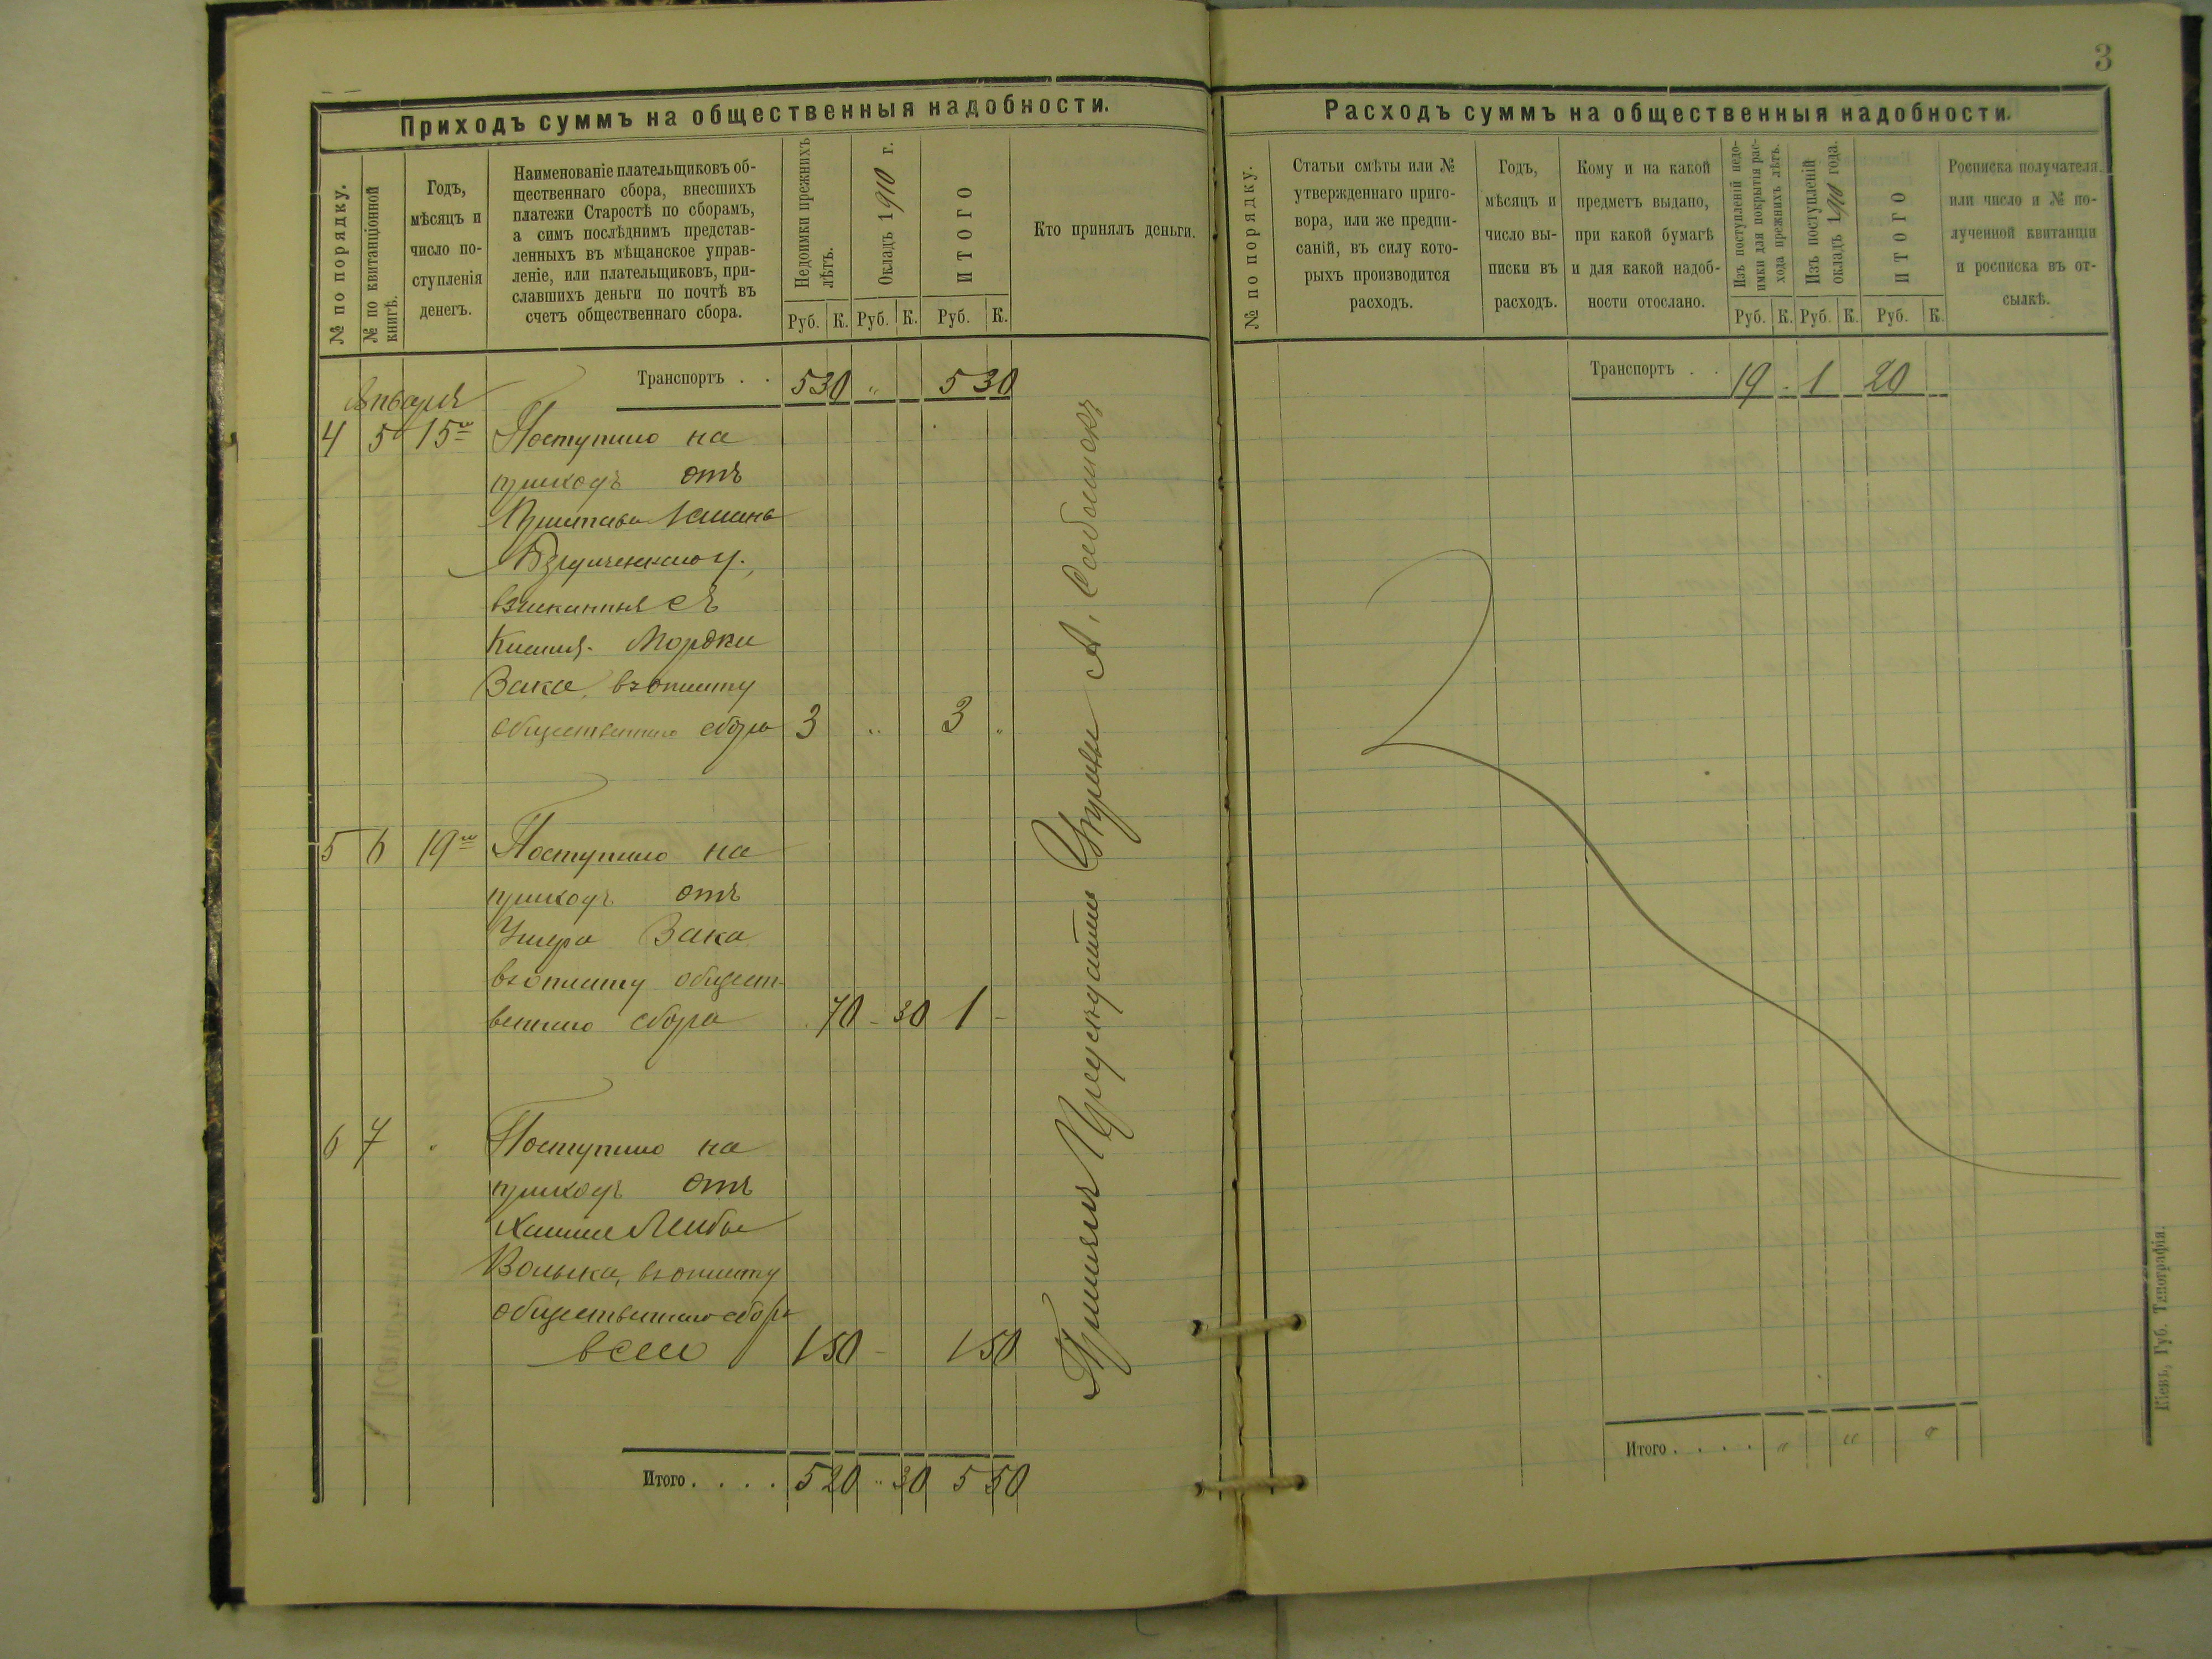 3
Приходъ суммъ на общественныя надобности.
№ по порядку.
№ по квитанціонной книгѣ.
Годъ,
мѣсяцъ и
число по-
ступленія
денегъ.
Наименованіе плательщиковъ об-
щественнаго сбора, внесшихъ
платежи Старостѣ по сборамъ,
а симъ послѣднимъ представ-
ленныхъ въ мѣщанское управ-
леніе, или плательщиковъ, при-
славшихъ деньги по почтѣ въ
счетъ общественнаго сбора.
Недоимки прежнихъ
лѣтъ.
Окладъ 1910 г.
ИТОГО
Кто принялъ деньги.
Руб. К. Руб. К. Руб. К.
Транспортъ . . 5 30 " 5 30
Января
4 5 15го Поступило на
приходъ отъ
Пристава
взысканныя съ
Мордки
Зака, въ уплату
общественнаго сбора 3 " 3 "
5 6 19го Поступило на
приходъ отъ
Зака
въ уплату общест-
веннаго сбора 70 - 30 1 -
6 7 " Поступило на
приходъ отъ
Лейбы
въ уплату
общественнаго сбора
всего 1 50 - 1 50
Итого . . . . 5 20 " 30 5 50
Принялъ А.
Расходъ суммъ на общественныя надобности.
№ по порядку.
Статьи смѣты или №
утвержденнаго приго-
вора, или же предпи-
саній, въ силу кото-
рыхъ производится
расходъ.
Годъ,
мѣсяцъ и
число вы-
писки въ
расходъ.
Кому и на какой
предметъ выдано,
при какой бумагѣ
и для какой надоб-
ности отослано.
Изъ поступленій недо-
имки для покрытія рас-
хода прежнихъ лѣтъ.
Изъ поступленій
окладъ 1910 года.
ИТОГО
Росписка получателя
или число и № по-
лученной квитанціи
и росписка въ от-
сылкѣ.
Руб. К. Руб. К. Руб. К.
Транспортъ . . 19 - 1 20 - -
Итого . . . . " " "
Кіевъ, Губ. Типографія.